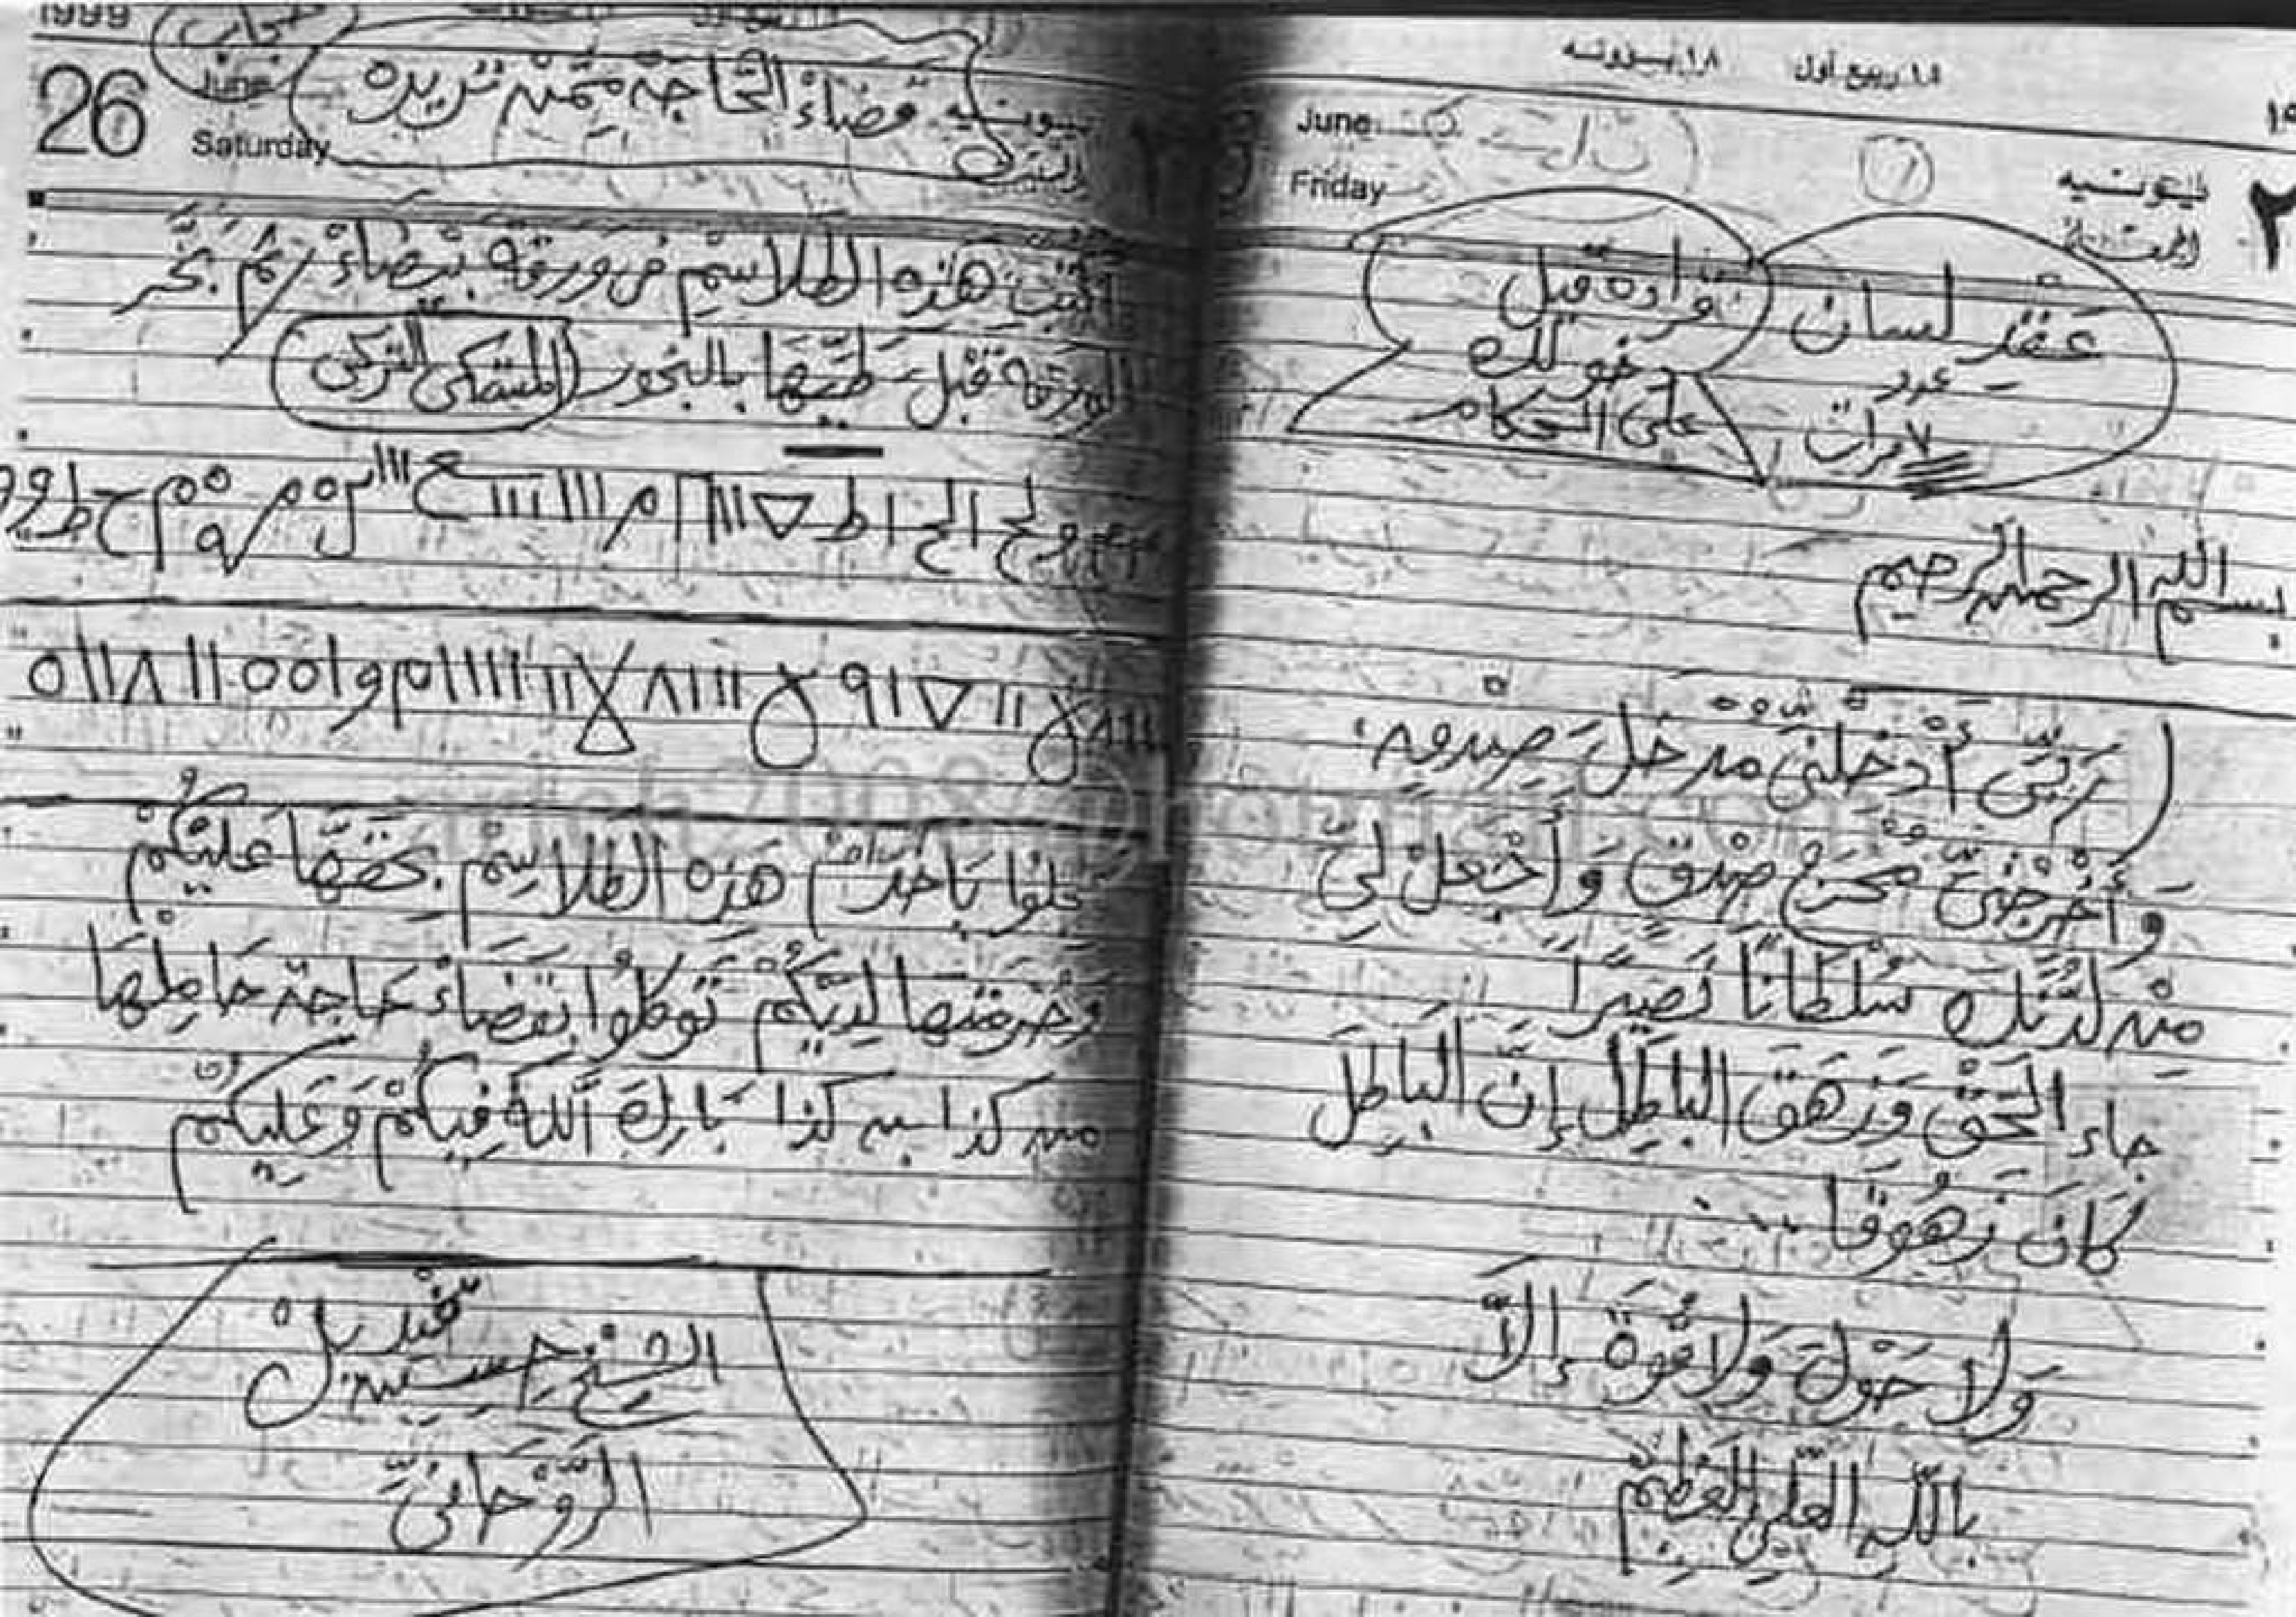 ١٨ بـؤونه ١١ ربيع أول
June
Friday
يونيه
الجمعة
عقد لسان
عدد
٧ مرات
قراءة قبل
دخولك
على الحكام
بسم الله الرحمن الرحيم
رَبِّ أَدْخِلْنِي مُدْخَلَ صِدْقٍ
وَأَخْرِجْنِي مُخْرَجَ صِدْقٍ وَاجْعَلْ لِي
مِنْ لَدُنْكَ سُلْطَانًا نَصِيرًا
جاء الْحَقُّ وَزَهَقَ الْبَاطِلُ إِنَّ الْبَاطِلَ
كَانَ زَهُوقًا
وَلَا حَوْلَ وَلَا قُوَّةَ إِلَّا
بِاللَّهِ الْعَلِيِّ الْعَظِيمِ
1999
26
June
Saturday
يونيه
السبت
مجرب
قضاء الحاجة فيمن تريده
اكتب هذه الطلاسم في ورقة بيضاء ثم بخر
الورقة قبل طيها بالبخور المستكى التركى
خدام هذه الطلاسم بحقها عليكم
وحرمتها لديكم توكلوا بقضاء حاجة حاملها
من كذا بن كذا بَارَكَ اللَّهُ فِيكُمْ وَعَلَيْكُمْ
الشيخ حسين قنديل
الروحاني